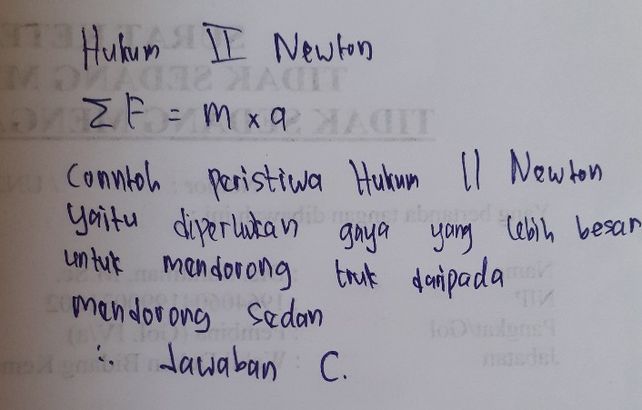 Hukum II Newton
ΣF = m x a
Conntoh peristiwa Hukum II Newton
yaitu diperlukan gaya yang lebih besar
untuk mendorong truk daripada
mendorong sedan
∴ Jawaban C.